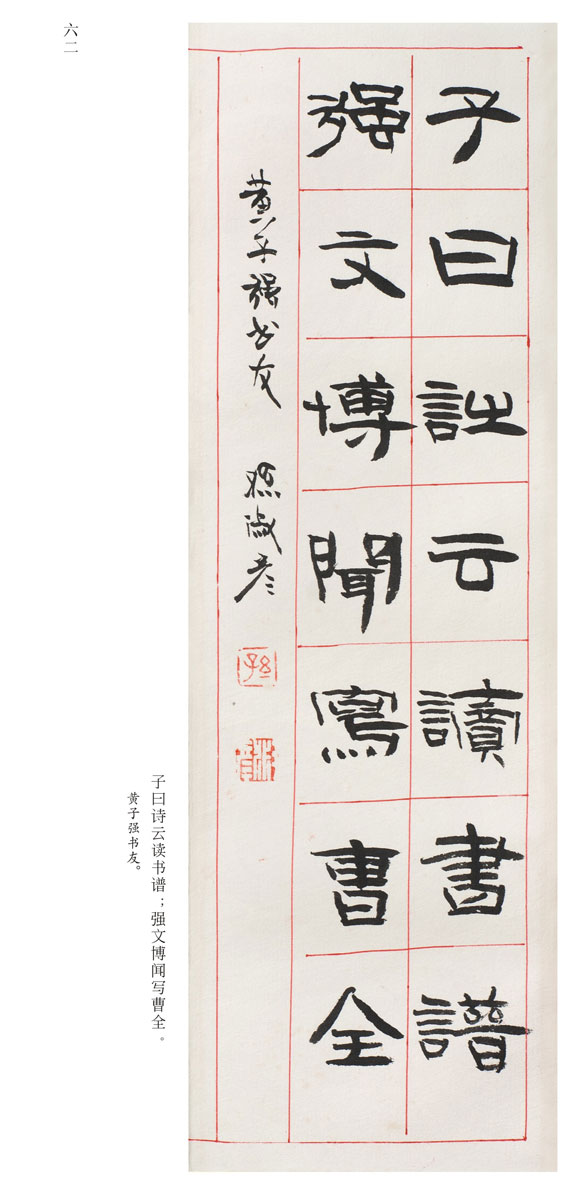 子曰詩云讀書譜
强文博聞寫曹全
黄子强书友 孫淑彦
子曰诗云读书谱；强文博闻写曹全。
黄子强书友。
六二